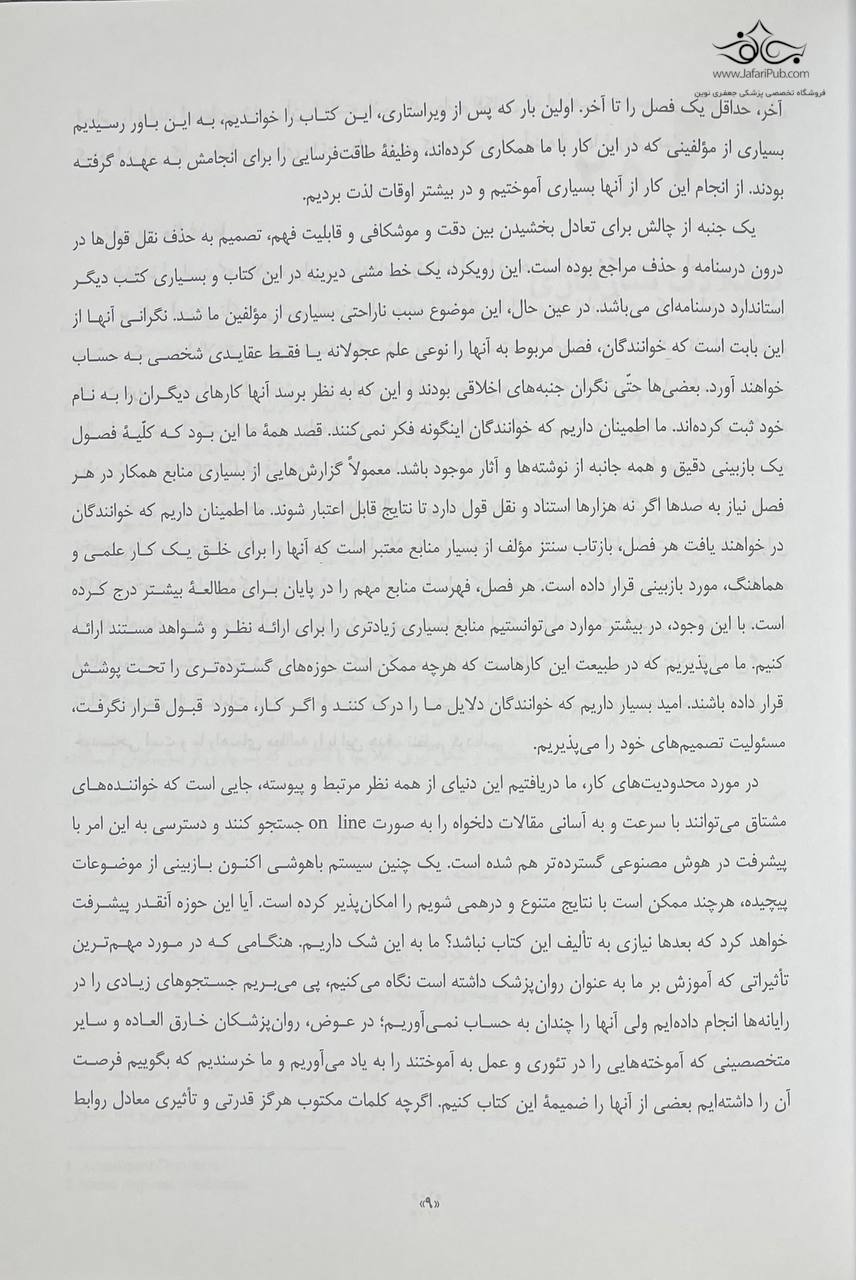 www.JafariPub.com
فروشگاه تخصصی پزشکی جعفری نوین
آخر، حداقل یک فصل را تا آخر. اولین بار که پس از ویراستاری، این کتاب را خواندیم، به این باور رسیدیم
بسیاری از مؤلفینی که در این کار با ما همکاری کرده‌اند، وظیفهٔ طاقت‌فرسایی را برای انجامش به عهده گرفته
بودند. از انجام این کار از آنها بسیاری آموختیم و در بیشتر اوقات لذت بردیم.
یک جنبه از چالش برای تعادل بخشیدن بین دقت و موشکافی و قابلیت فهم، تصمیم به حذف نقل قول‌ها در
درون درسنامه و حذف مراجع بوده است. این رویکرد، یک خط مشی دیرینه در این کتاب و بسیاری کتب دیگر
استاندارد درسنامه‌ای می‌باشد. در عین حال، این موضوع سبب ناراحتی بسیاری از مؤلفین ما شد. نگرانی آنها از
این بابت است که خوانندگان، فصل مربوط به آنها را نوعی علم عجولانه یا فقط عقایدی شخصی به حساب
خواهند آورد. بعضی‌ها حتّی نگران جنبه‌های اخلاقی بودند و این که به نظر برسد آنها کارهای دیگران را به نام
خود ثبت کرده‌اند. ما اطمینان داریم که خوانندگان اینگونه فکر نمی‌کنند. قصد همهٔ ما این بود که کلّیهٔ فصول
یک بازبینی دقیق و همه جانبه از نوشته‌ها و آثار موجود باشد. معمولاً گزارش‌هایی از بسیاری منابع همکار در هر
فصل نیاز به صدها اگر نه هزارها استناد و نقل قول دارد تا نتایج قابل اعتبار شوند. ما اطمینان داریم که خوانندگان
در خواهند یافت هر فصل، بازتاب سنتز مؤلف از بسیار منابع معتبر است که آنها را برای خلق یک کار علمی و
هماهنگ، مورد بازبینی قرار داده است. هر فصل، فهرست منابع مهم را در پایان برای مطالعهٔ بیشتر درج کرده
است. با این وجود، در بیشتر موارد می‌توانستیم منابع بسیاری زیادتری را برای ارائه نظر و شواهد مستند ارائه
کنیم. ما می‌پذیریم که در طبیعت این کارهاست که هرچه ممکن است حوزه‌های گسترده‌تری را تحت پوشش
قرار داده باشند. امید بسیار داریم که خوانندگان دلایل ما را درک کنند و اگر کار، مورد قبول قرار نگرفت،
مسئولیت تصمیم‌های خود را می‌پذیریم.
در مورد محدودیت‌های کار، ما دریافتیم این دنیای از همه نظر مرتبط و پیوسته، جایی است که خواننده‌های
مشتاق می‌توانند با سرعت و به آسانی مقالات دلخواه را به صورت on line جستجو کنند و دسترسی به این امر با
پیشرفت در هوش مصنوعی گسترده‌تر هم شده است. یک چنین سیستم باهوشی اکنون بازبینی از موضوعات
پیچیده، هرچند ممکن است با نتایج متنوع و درهمی شویم را امکان‌پذیر کرده است. آیا این حوزه آنقدر پیشرفت
خواهد کرد که بعدها نیازی به تألیف این کتاب نباشد؟ ما به این شک داریم. هنگامی که در مورد مهم‌ترین
تأثیراتی که آموزش بر ما به عنوان روان‌پزشک داشته است نگاه می‌کنیم، پی می‌بریم جستجوهای زیادی را در
رایانه‌ها انجام داده‌ایم ولی آنها را چندان به حساب نمی‌آوریم؛ در عوض، روان‌پزشکان خارق العاده و سایر
متخصصینی که آموخته‌هایی را در تئوری و عمل به آموختند را به یاد می‌آوریم و ما خرسندیم که بگوییم فرصت
آن را داشته‌ایم بعضی از آنها را ضمیمهٔ این کتاب کنیم. اگرچه کلمات مکتوب هرگز قدرتی و تأثیری معادل روابط
«۹»